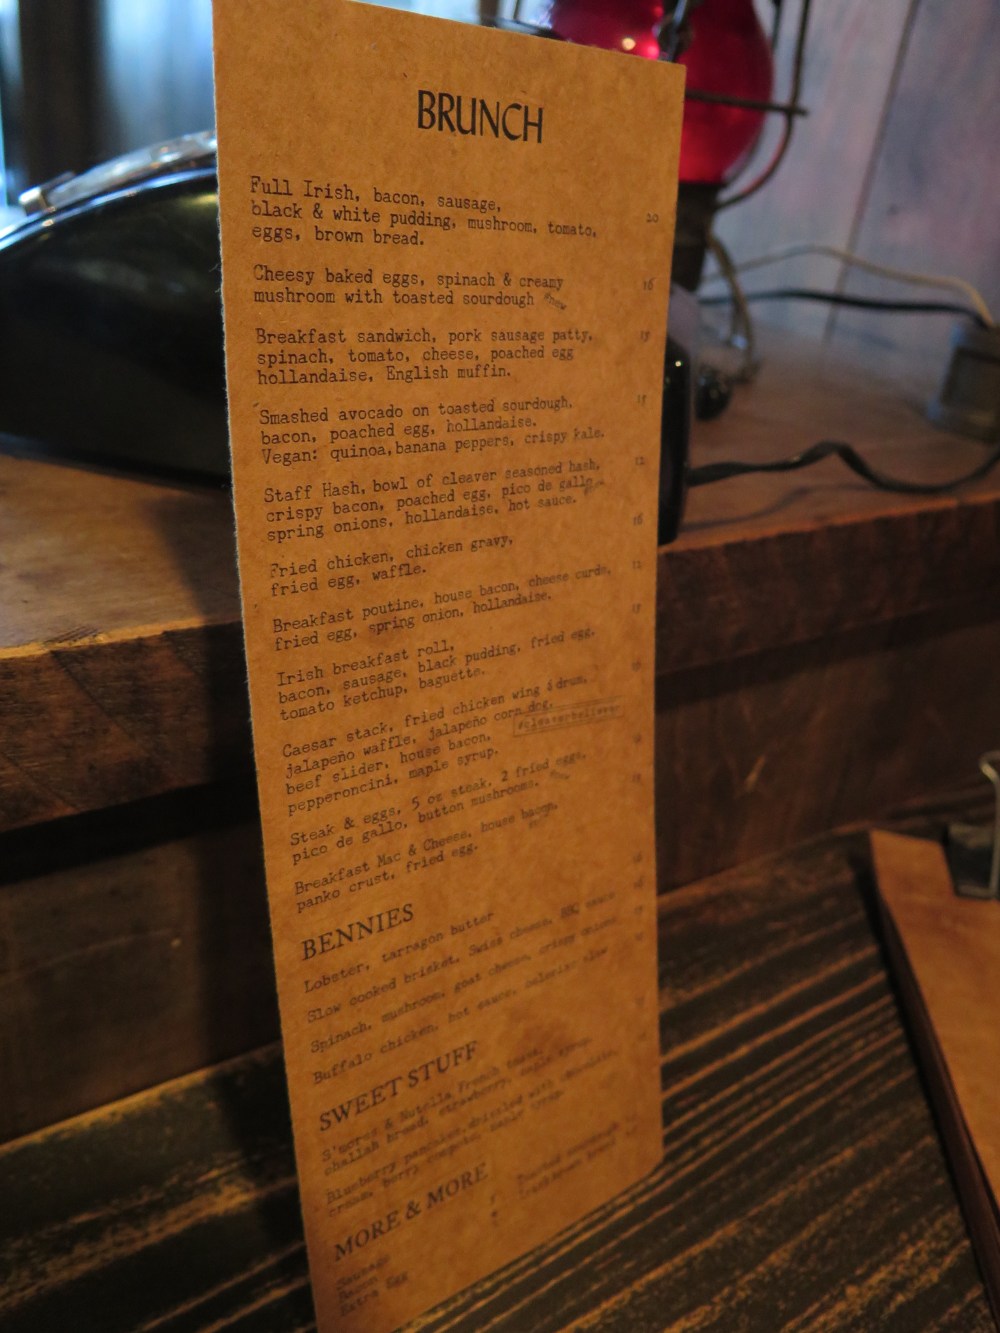 BRUNCH
Full Irish, bacon, sausage,
black & white pudding, mushroom, tomato, 20
eggs, brown bread.
Cheesy baked eggs, spinach & creamy 16
mushroom with toasted sourdough
Breakfast sandwich, pork sausage patty,
spinach, tomato, cheese, poached egg
hollandaise, English muffin.
Smashed avocado on toasted sourdough,
bacon, poached egg, hollandaise.
Vegan: quinoa, banana peppers, crispy kale.
Staff Hash, bowl of cleaver seasoned hash, 12
crispy bacon, poached egg, pico de gallo
spring onions, hollandaise, hot sauce.
Fried chicken, chicken gravy, 16
fried egg, waffle.
Breakfast poutine, house bacon, cheese curds,
fried egg, spring onion, hollandaise.
Irish breakfast roll,
bacon, sausage, black pudding, fried egg,
tomato ketchup, baguette.
Caesar stack, fried chicken wing & drum,
jalapeño waffle, jalapeño corn dog,
beef slider, house bacon, #cleaverbeliever
pepperoncini, maple syrup.
Steak & eggs, 5 oz steak, 2 fried eggs,
pico de gallo, button mushrooms.
Breakfast Mac & Cheese, house bacon,
panko crust, fried egg.
BENNIES
Lobster, tarragon butter
Slow cooked brisket, Swiss cheese, BBQ sauce
Spinach, mushroom, goat cheese, crispy onions
Buffalo chicken, hot sauce, celeriac slaw
SWEET STUFF
S'mores & Nutella French toast,
challah bread, strawberry, maple syrup.
Blueberry pancakes, drizzled with chocolate,
cream, berry compote, maple syrup.
MORE & MORE
Sausage
Bacon
Extra Egg